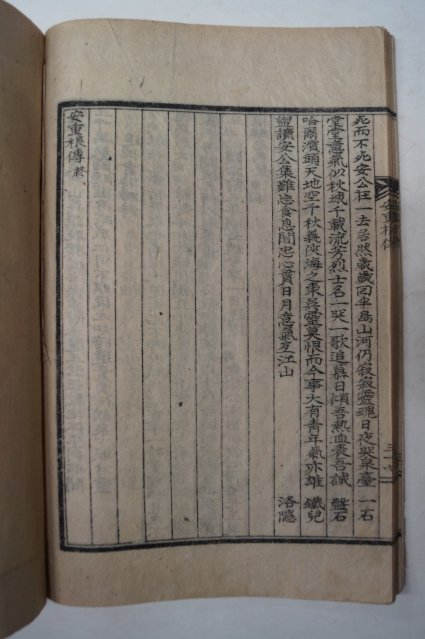 死而不死安公在一去莟然歲歲回半島山河仍寂寂靈魂日夜哭泉臺 一石
堂堂意氣似秋城千載流芳烈士名一哭一歌追慕日傾吾熱血表吾誠 盤石
哈爾濱頭天地空千秋義俠海之東英靈莫恨而今事大有青年氣亦雄 鐵兒
盥讀安公集難忘食息間忠心貫日月意氣亙江山 洛隱
安重根傳 終
安重根傳